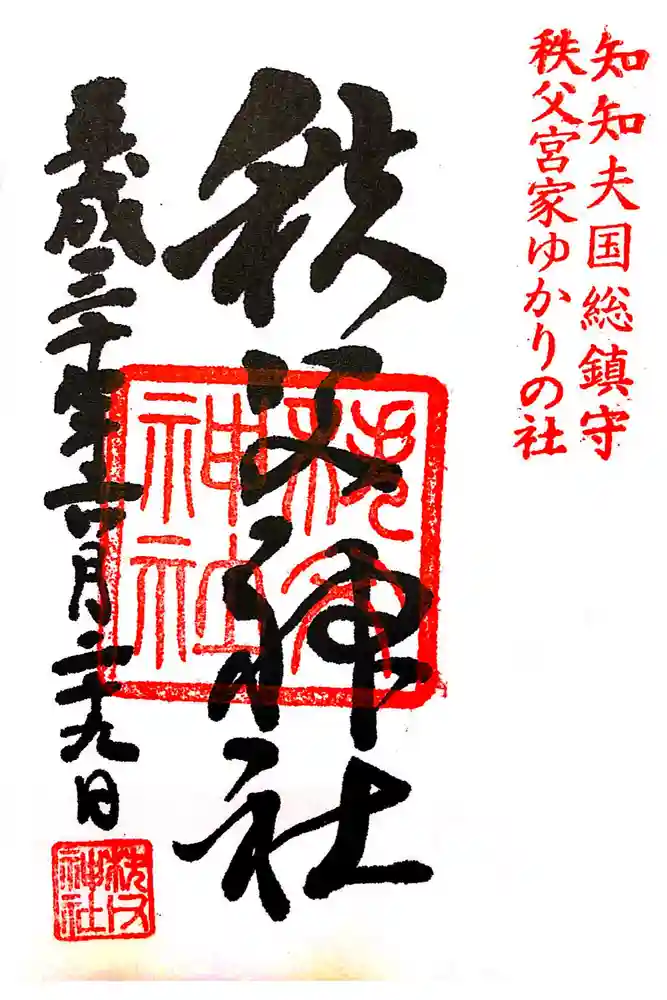 知知夫国総鎮守
秩父宮家ゆかりの社
秩父神社
秩父神社
平成三十年六月二十九日
秩父神社